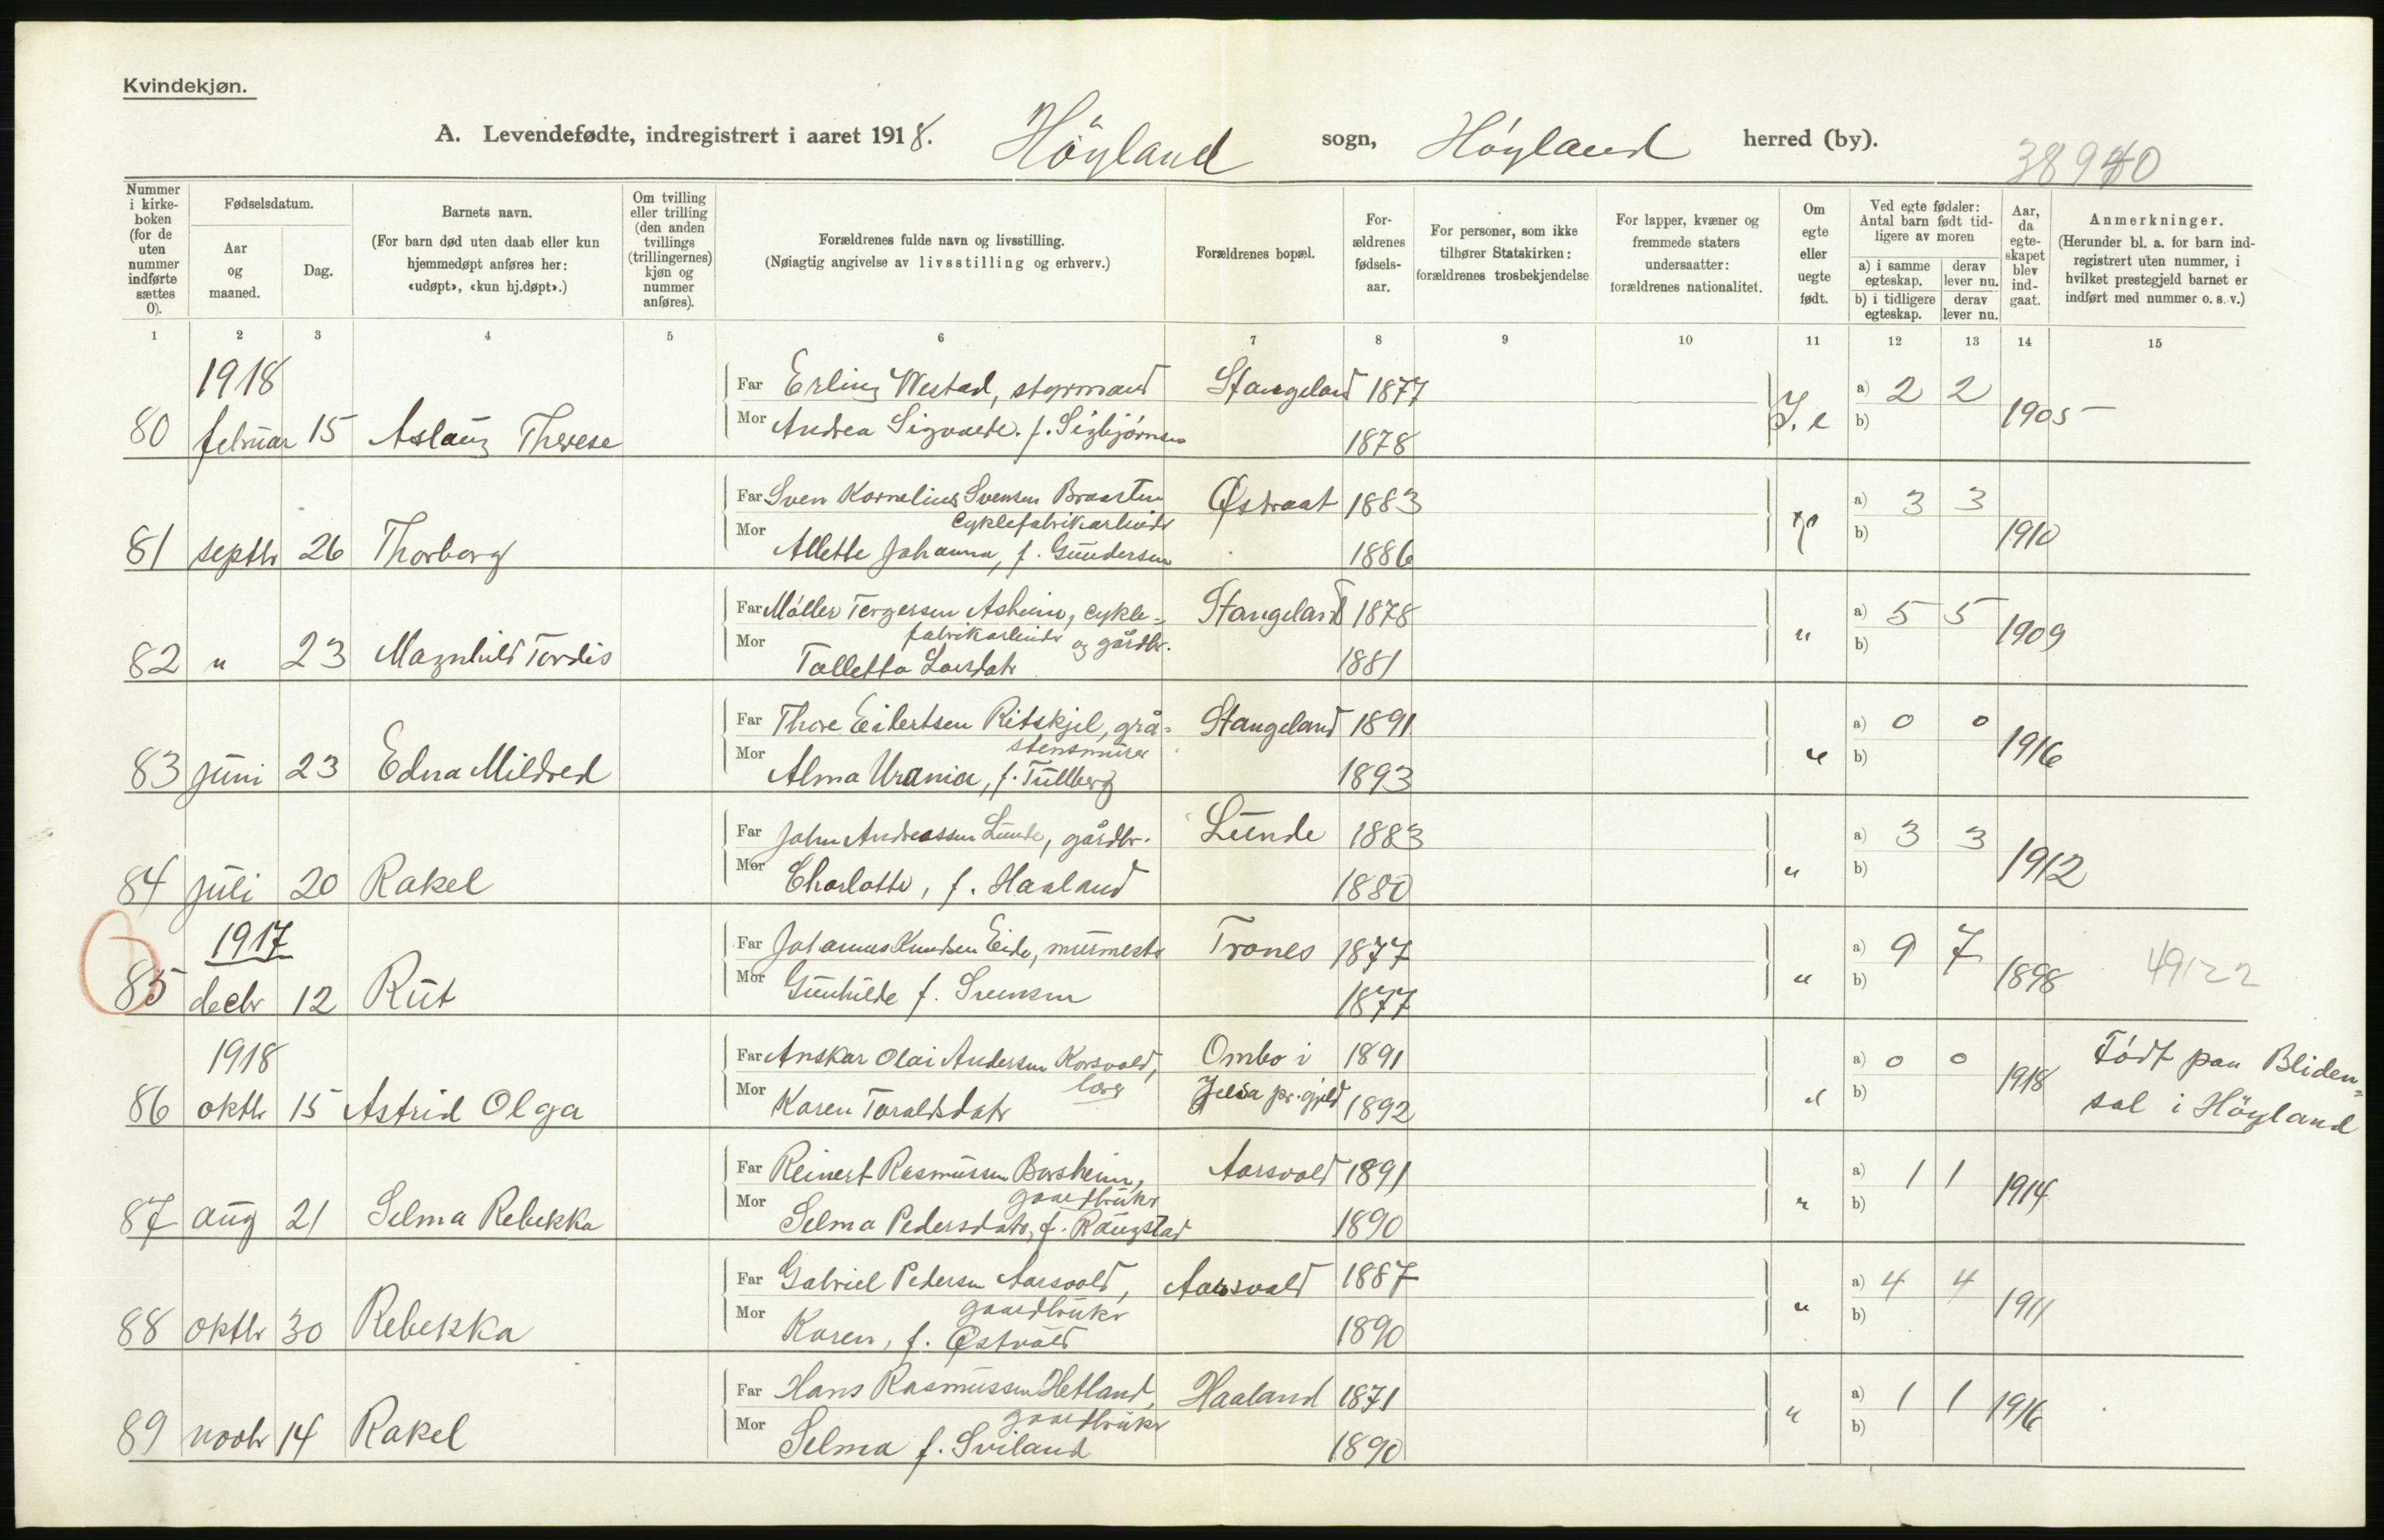 Kvindekjøn.
A. Levendefødte, indregistrert i aaret 1918. Höyland sogn, Höyland herred (by).
38940
Nummer i kirke-boken (for de uten nummer indførte sættes 0).
Fødselsdatum.
Aar og maaned.
Dag.
Barnets navn.
(For barn død uten daab eller kun hjemmedøpt anføres her: «udøpt», «kun hj.døpt».)
Om tvilling eller trilling (den anden tvillings (trillingernes) kjøn og nummer anføres).
Forældrenes fulde navn og livsstilling.
(Nøiagtig angivelse av livsstilling og erhverv.)
Forældrenes bopæl.
For-ældrenes fødsels-aar.
For personer, som ikke tilhører Statskirken: forældrenes trosbekjendelse
For lapper, kvæner og fremmede staters undersaatter: forældrenes nationalitet.
Om egte eller uegte født.
Ved egte fødsler: Antal barn født tid-ligere av moren
a) i samme egteskap.
derav lever nu.
b) i tidligere egteskap.
derav lever nu.
Aar, da egte-skapet blev ind-gaat.
Anmerkninger.
(Herunder bl. a. for barn ind-registrert uten nummer, i hvilket prestegjeld barnet er indført med nummer o. s. v.)
1 2 3 4 5 6 7 8 9 10 11 12 13 14 15
1918
Far Erling Westad, styrmand Stangeland 1877 a) 2 2
80 februar 15 Aslaug Therese Mor Andrea Sigvarda f. Sigbjörnsen 1878 b) 1905
Far Sven Kornelius Svensen Braasten Østraat 1883 a) 3 3
cyklefabrikarbeider
81 septbr 26 Thorborg Mor Allette Johanna, f. Gundersen 1886 b) 1910
Far Möller Torgersen Asheim, cykle= Stangeland 1878 a) 5 5
fabrikarbeider og gårdbr.
82 " 23 Magnhild Tordis Mor Talletta Larsdatr 1881 " b) 1909
Far Thore Eilertsen Ritskjel, grå= Stangeland 1891 a) 0 0
stensmurer
83 juni 23 Edna Mildred Mor Alma Urania, f. Tullberg 1893 " b) 1916
Far John Andreassen Lunde, gårdbr. Lunde 1883 a) 3 3
84 juli 20 Rakel Mor Charlotte, f. Haaland 1880 " b) 1912
1917
Far Johannes Knudsen Eide, murmestr Trones 1877 a) 9 7
85 decbr 12 Rut Mor Gunhilde f. Svensen 1877 " b) 1898 49122
1918
Far Anskar Olai Andersen Korsvold, Ombo i 1891 a) 0 0 Födt paa Bliden=
lærer
86 oktbr 15 Astrid Olga Mor Karen Toraldsdatr Jelsa pr.gjeld 1892 " b) 1918 sol i Höyland
Far Reinert Rasmussen Borsheim, Aarsvold 1891 a) 1 1
gaardbruker
87 aug 21 Selma Rebekka Mor Selma Pedersdatr, f. Raugstad 1890 " b) 1914
Far Gabriel Pedersen Aarsvold, Aarsvold 1887 a) 4 4
gaardbruker
88 oktbr 30 Rebekka Mor Karen, f. Østvold 1890 " b) 1911
Far Hans Rasmussen Hetland, Haaland 1871 a) 1 1
gaardbruker
89 novbr 14 Rakel Mor Selma f. Sviland 1890 " b) 1916